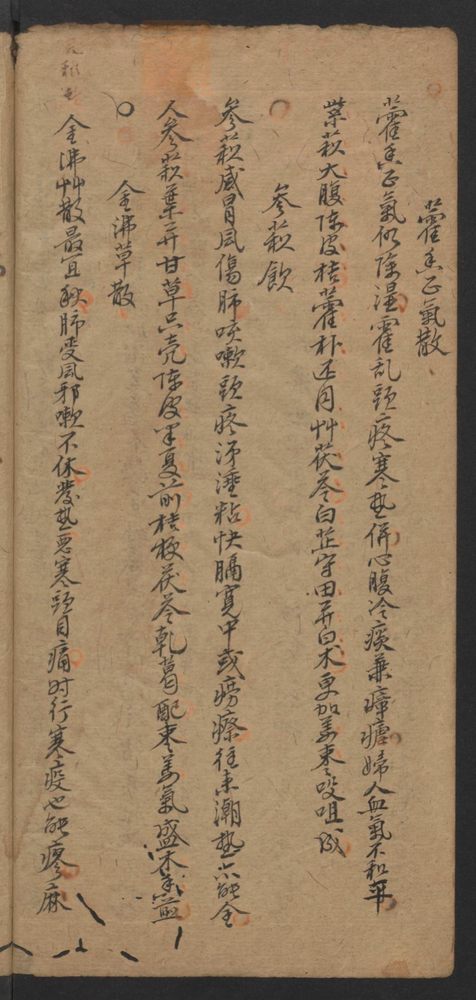 藿香正氣散
藿香正氣似除湿霍乱頭疼寒热併心腹冷痰兼瘴瘧婦人血氣不和平
紫蘇大腹陈皮桔藿朴还同艸茯苓白芷宁田并白术更加姜枣㕮咀成
参蘇飲
参蘇感冒風傷肺咳嗽頭疼涕唾粘快膈寛中或痨瘵往来潮热亦能全
人参蘇葉并甘草只壳陈皮半夏前桔梗茯苓乾葛配枣姜氣盛木香煎
金沸草散
金沸艸散最宜秋肺受風邪嗽不休發热恶寒頭目痛时行寒疫也能瘳麻